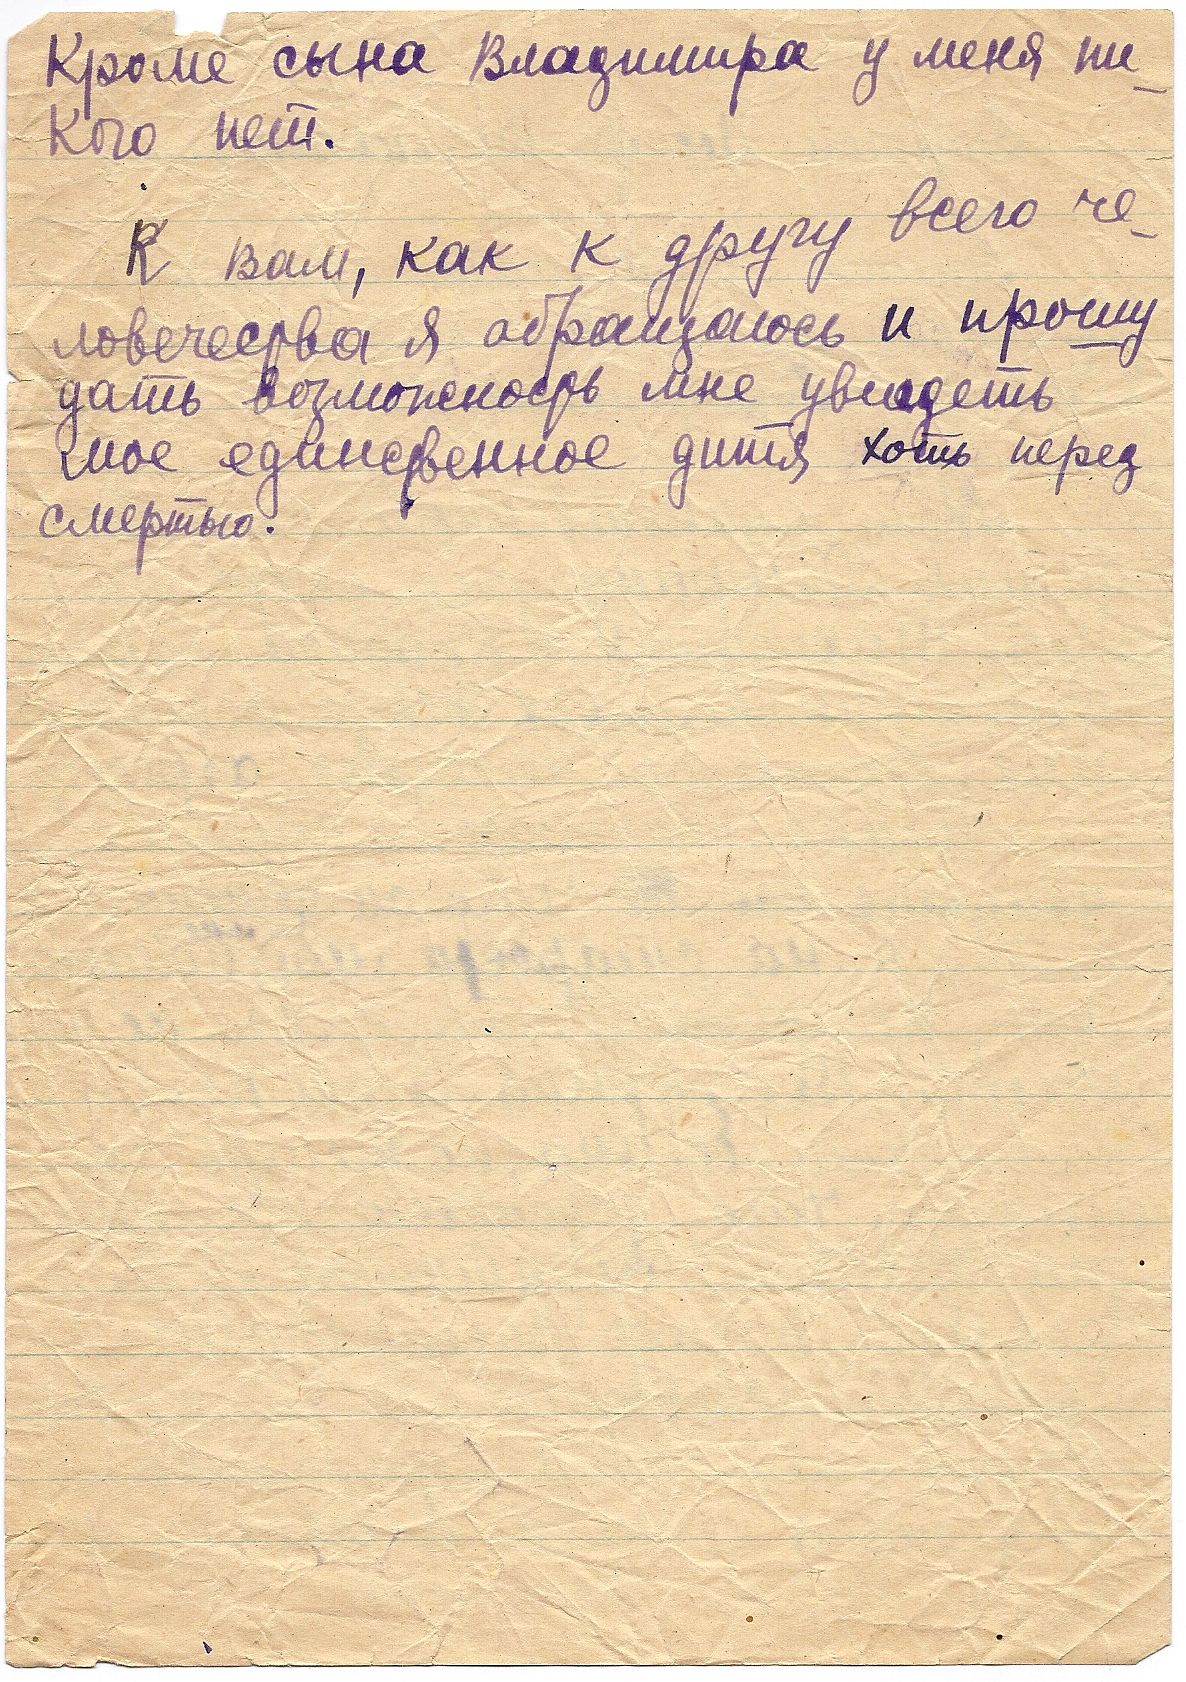 Кроме сына Владимира у меня ни-
кого нет.
К вам, как к другу всего че-
ловечества я обращаюсь и прошу
дать возможность мне увидеть
мое единственное дитя хоть перед
смертью.